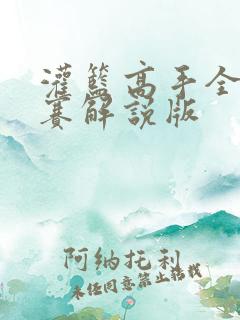 灌籃高手全
賽解說版
阿纳托利
未经同意禁止转载